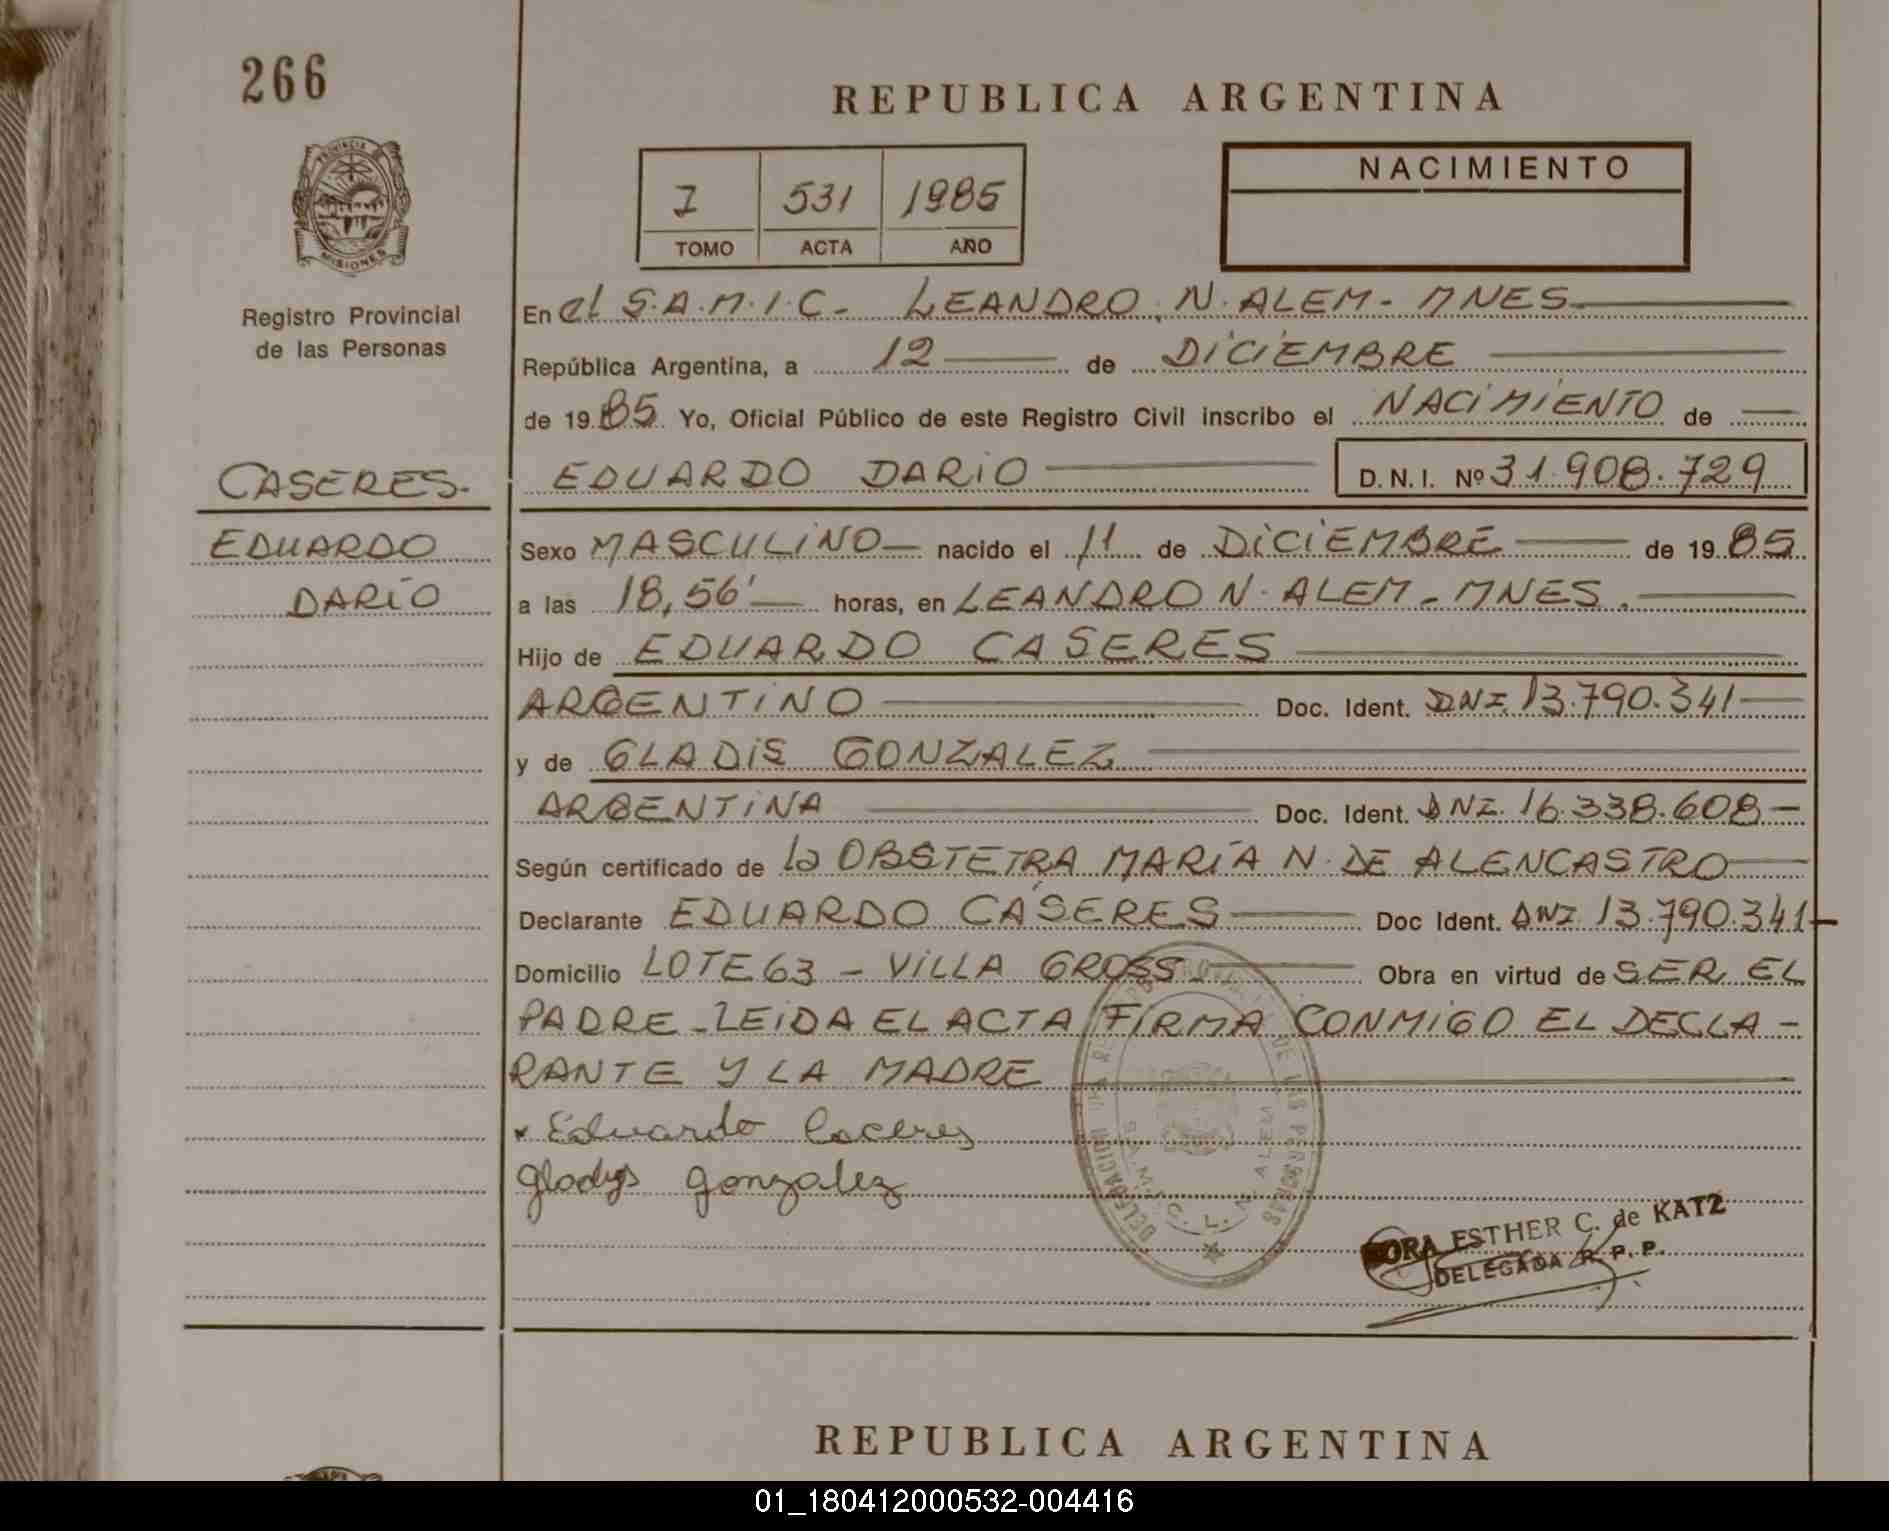 266
REPUBLICA ARGENTINA
PROVINCIA
MISIONES
Registro Provincial
de las Personas
I 531 1985
TOMO ACTA AÑO
NACIMIENTO
En el S.A.M.I.C. LEANDRO N. ALEM - MNES
República Argentina, a 12 de DICIEMBRE
de 1985 Yo, Oficial Público de este Registro Civil inscribo el NACIMIENTO de
CASERES
EDUARDO
DARIO
EDUARDO DARIO D.N.I. Nº 31.908.729
Sexo MASCULINO nacido el 11 de DICIEMBRE de 1985
a las 18,56' horas, en LEANDRO N. ALEM - MNES.
Hijo de EDUARDO CASERES
ARGENTINO Doc. Ident. DNI. 13.790.341
y de GLADIS GONZALEZ
ARGENTINA Doc. Ident. DNI. 16.338.608
Según certificado de la OBSTETRA MARIA N. DE ALENCASTRO
Declarante EDUARDO CASERES Doc Ident. DNI. 13.790.341
Domicilio LOTE 63 - VILLA GROSS Obra en virtud de SER EL
PADRE - LEIDA EL ACTA FIRMA CONMIGO EL DECLA-
RANTE Y LA MADRE
x Eduardo Caceres
Gladys Gonzalez
DELEGACION DE LAS PERSONAS
S.A.M.I.C. L. N. ALEM
ESTHER C. de KATZ
DELEGADA R. P. P.
REPUBLICA ARGENTINA
01_180412000532-004416